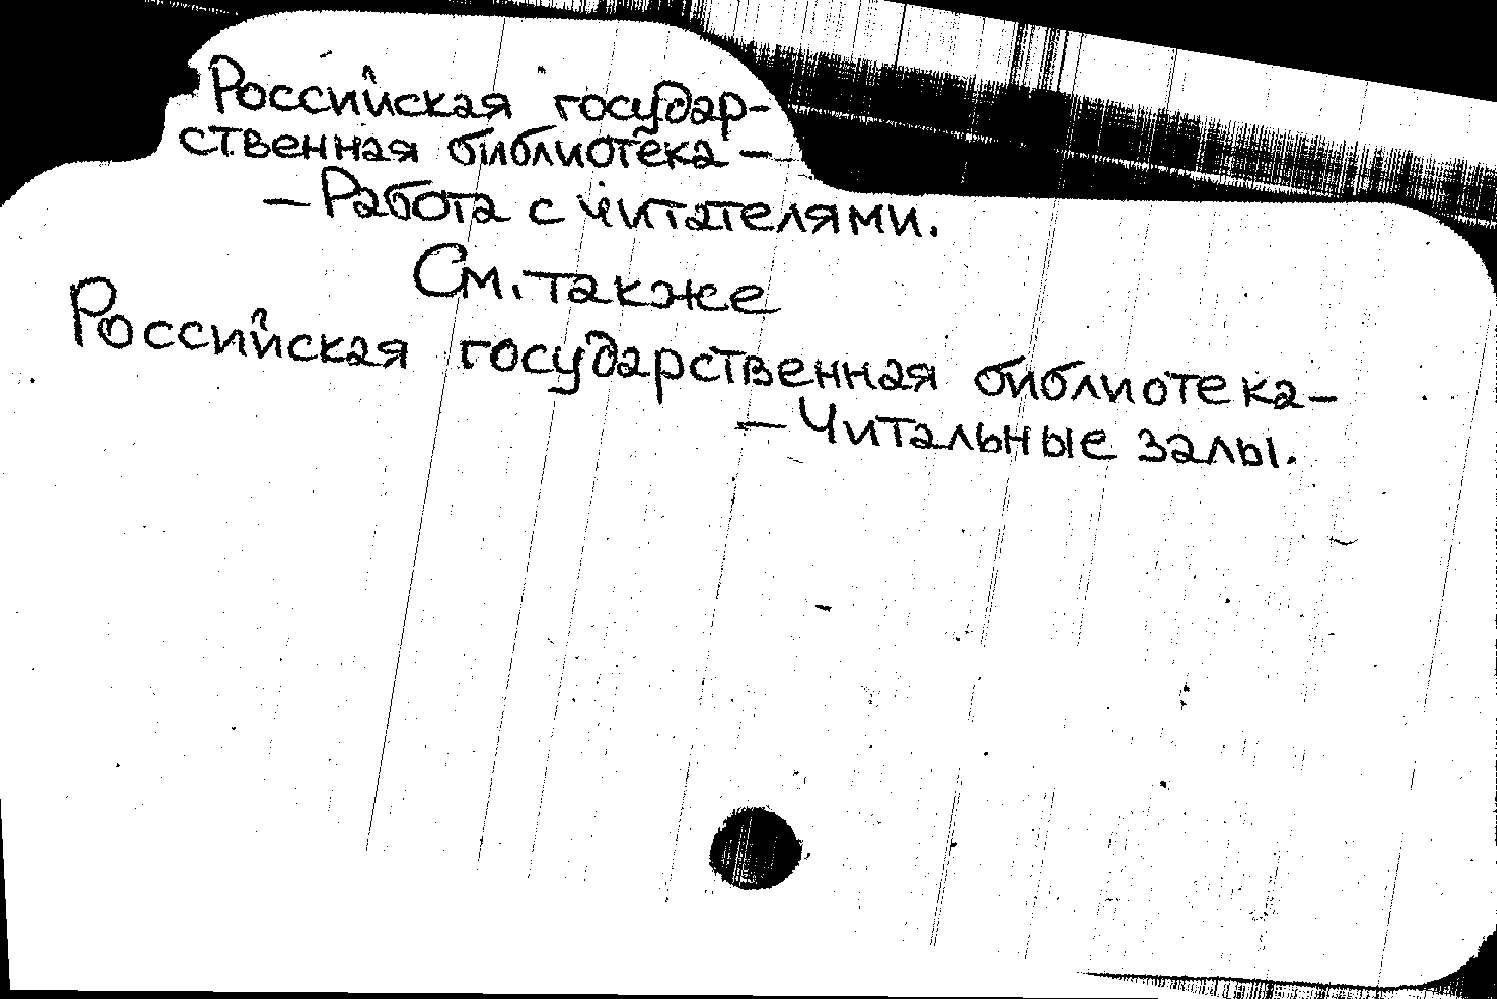 Российская государ-
ственная библиотека —
— Работа с читателями.
См. также
Российская государственная библиотека —
— Читальные залы.